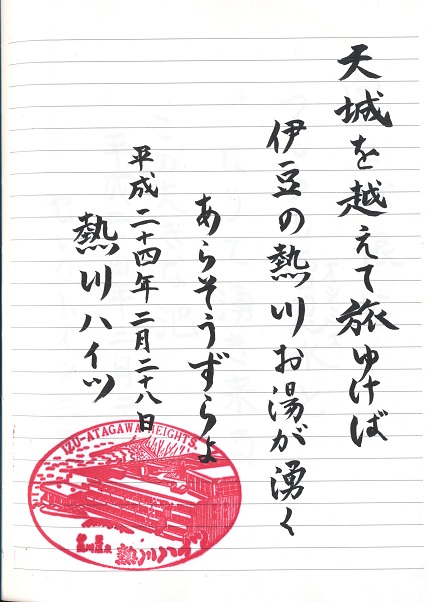 天城を越えて旅ゆけば
伊豆の熱川お湯が湧く
あらそうずらよ
平成二十四年二月二十八日
熱川ハイツ
IZU-ATAGAWA HEIGHTS
熱川温泉
熱川ハイツ